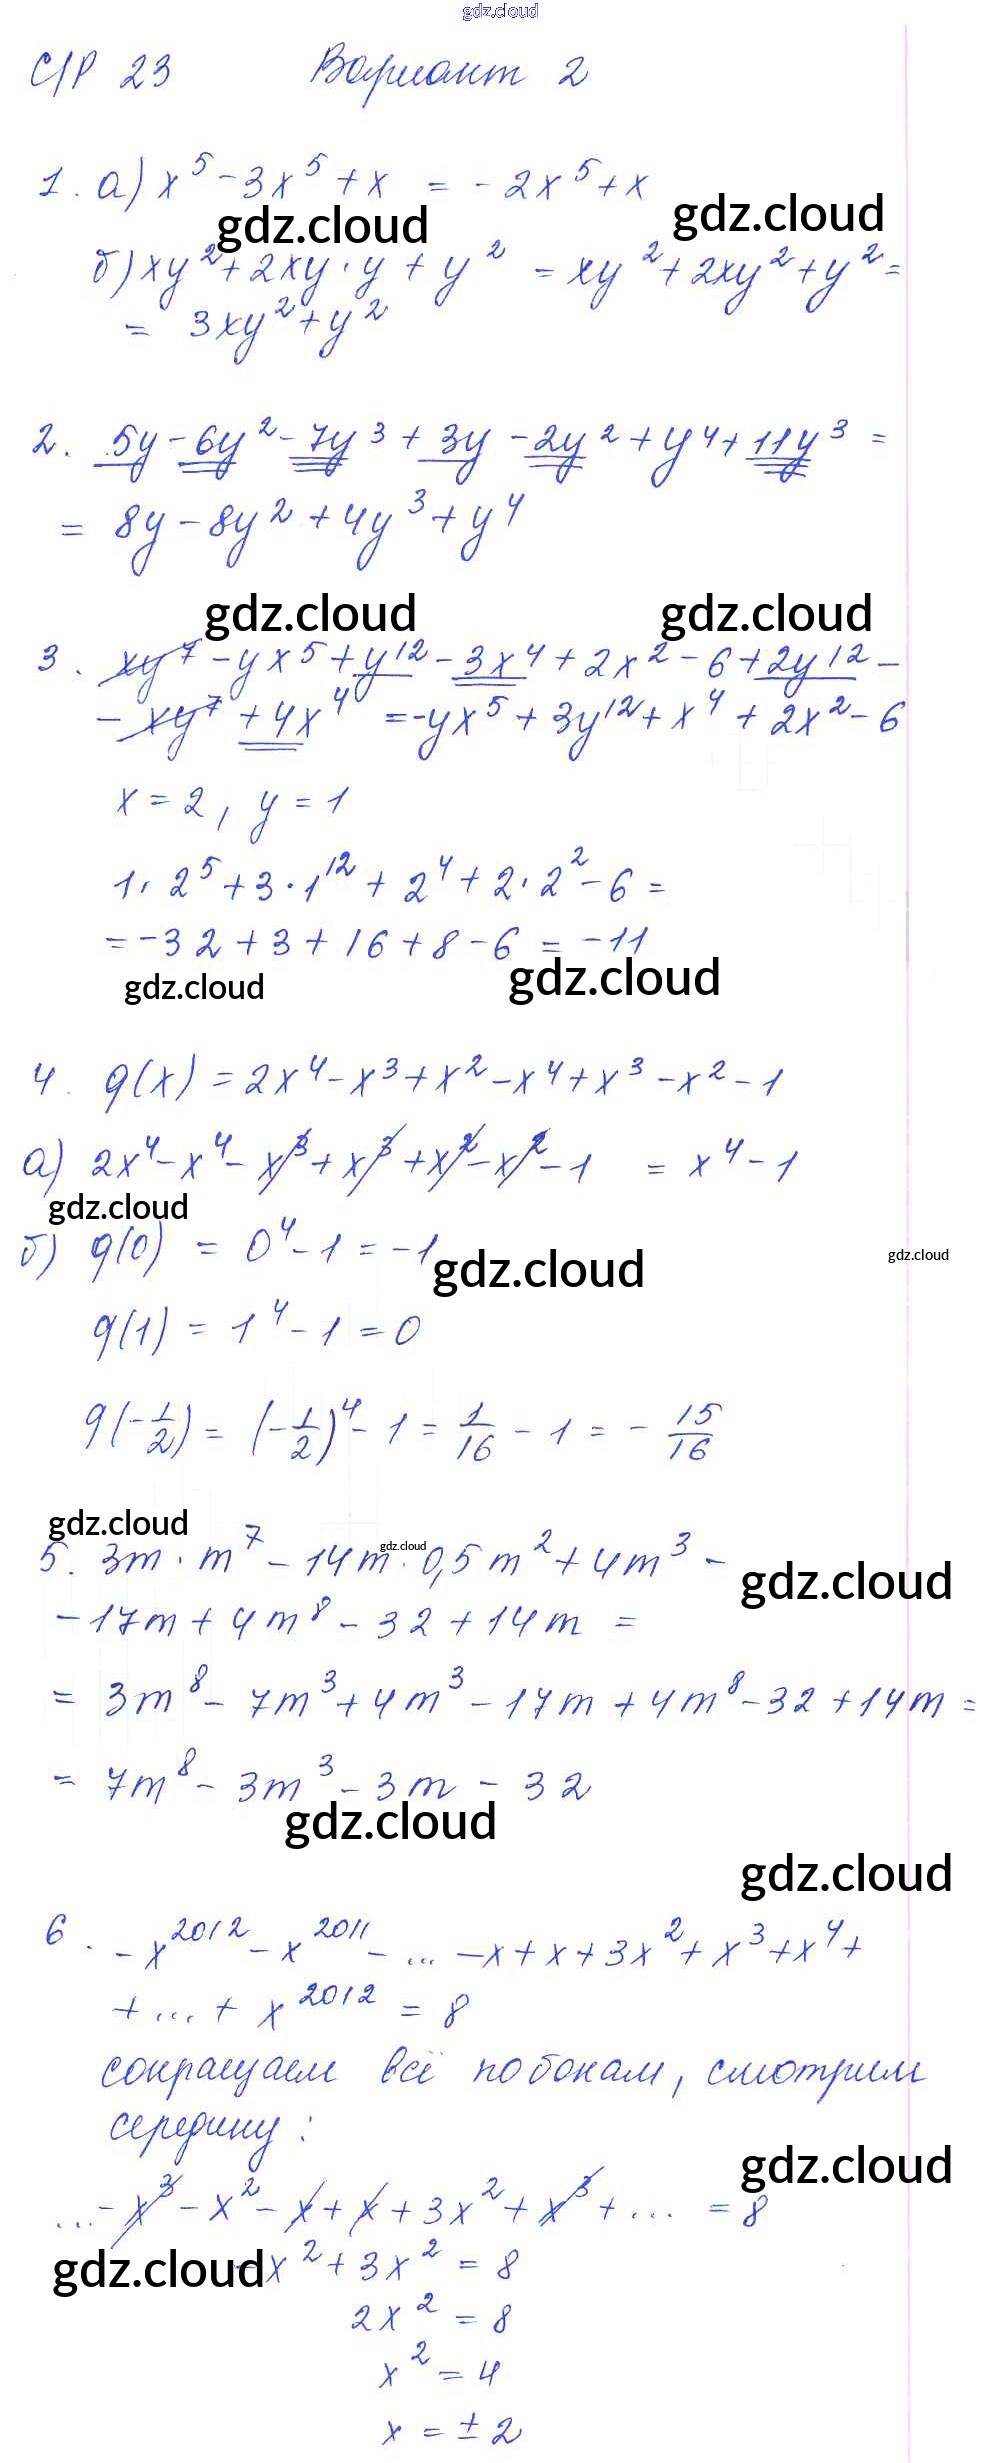 gdz.cloud
С/Р 23 Вариант 2
1. а) x⁵ - 3x⁵ + x = - 2x⁵ + x
gdz.cloud gdz.cloud
б) xy² + 2xy · y + y² = xy² + 2xy² + y² =
= 3xy² + y²
2. 5y - 6y² - 7y³ + 3y - 2y² + y⁴ + 11y³ =
= 8y - 8y² + 4y³ + y⁴
gdz.cloud gdz.cloud
3. xy⁷ - yx⁵ + y¹² - 3x⁴ + 2x² - 6 + 2y¹² -
- xy⁷ + 4x⁴ = -yx⁵ + 3y¹² + x⁴ + 2x² - 6
x = 2, y = 1
1 · 2⁵ + 3 · 1¹² + 2⁴ + 2 · 2² - 6 =
= -32 + 3 + 16 + 8 - 6 = -11
gdz.cloud gdz.cloud
4. g(x) = 2x⁴ - x³ + x² - x⁴ + x³ - x² - 1
а) 2x⁴ - x⁴ - x³ + x³ + x² - x² - 1 = x⁴ - 1
gdz.cloud
б) g(0) = 0⁴ - 1 = -1
gdz.cloud gdz.cloud
g(1) = 1⁴ - 1 = 0
g(-1/2) = (-1/2)⁴ - 1 = 1/16 - 1 = - 15/16
gdz.cloud gdz.cloud
5. 3m · m⁷ - 14m · 0,5m² + 4m³ -
gdz.cloud
- 17m + 4m⁸ - 32 + 14m =
= 3m⁸ - 7m³ + 4m³ - 17m + 4m⁸ - 32 + 14m =
= 7m⁸ - 3m³ - 3m - 32
gdz.cloud
gdz.cloud
6. - x²⁰¹² - x²⁰¹¹ - ... - x + x + 3x² + x³ + x⁴ +
+ ... + x²⁰¹² = 8
сокращаем всё по бокам, смотрим
середину:
gdz.cloud
... - x³ - x² - x + x + 3x² + x³ + ... = 8
gdz.cloud
- x² + 3x² = 8
2x² = 8
x² = 4
x = ± 2